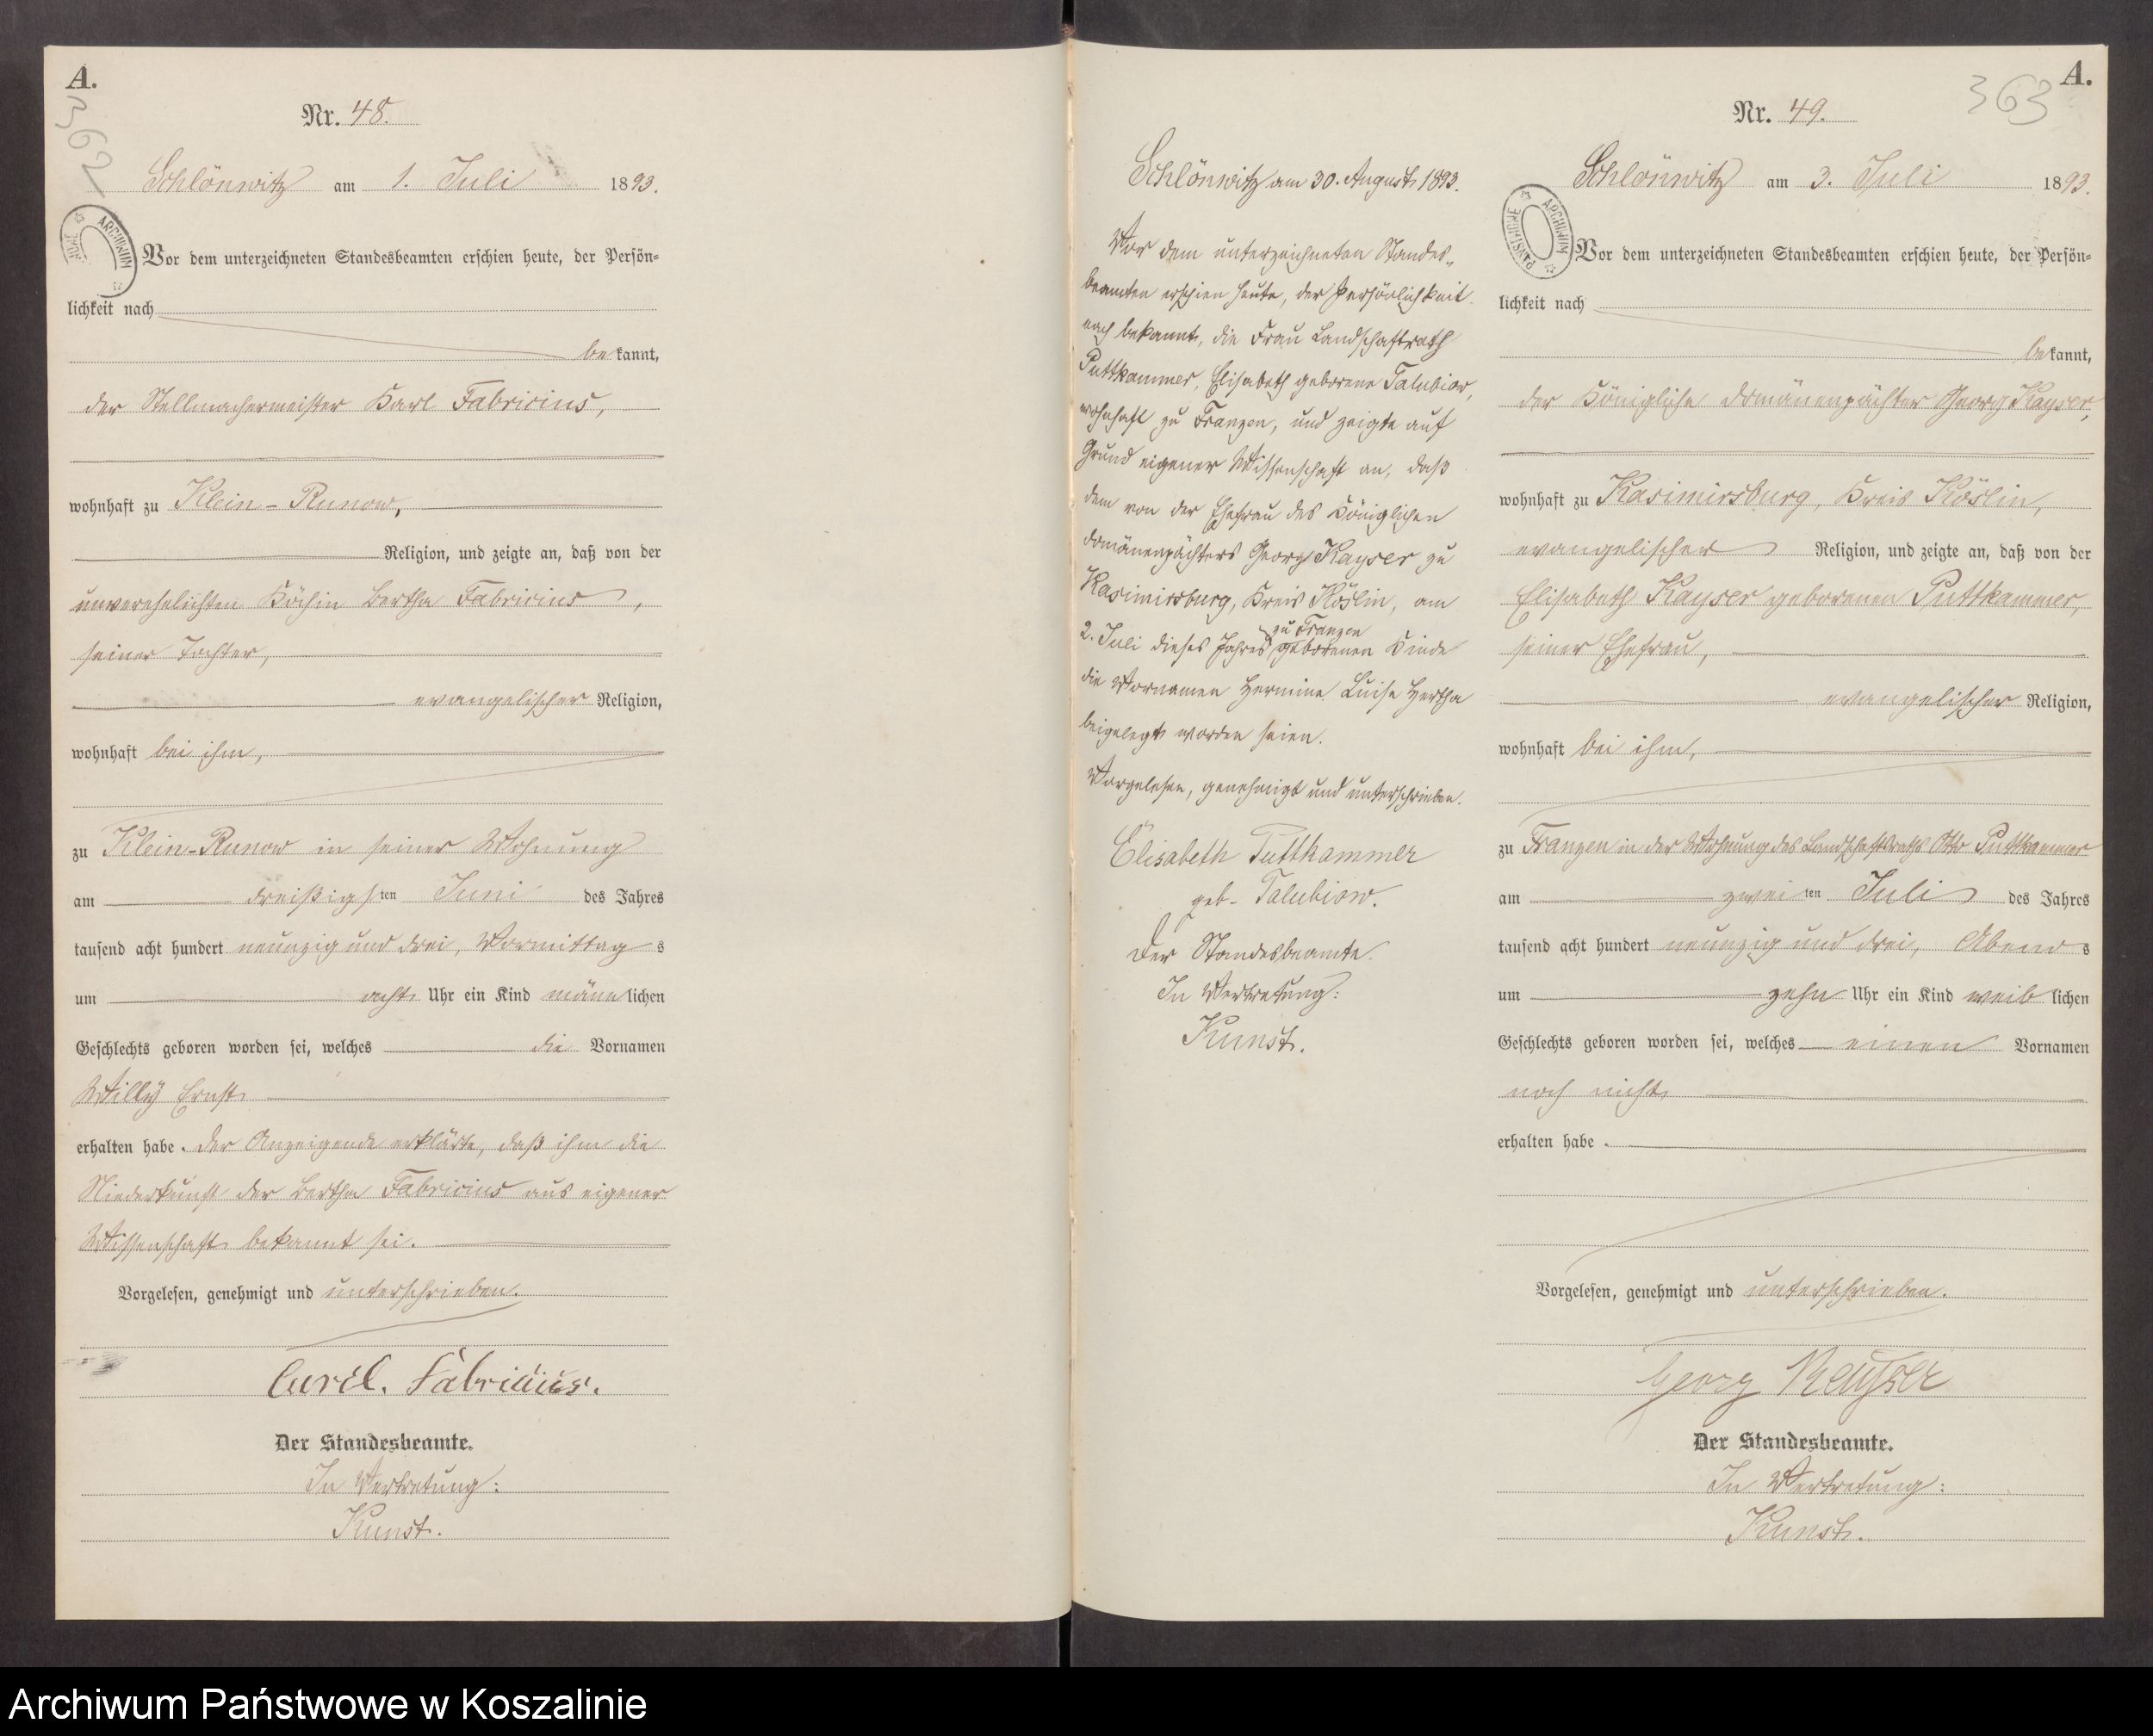 A.
362
Nr. 48.
Schlönwitz am 1. Juli 1893.
Vor dem unterzeichneten Standesbeamten erschien heute, der Persön-
lichkeit nach
bekannt,
der Stellmachermeister Karl Fabricius,
wohnhaft zu Klein-Runow,
Religion, und zeigte an, daß von der
unverehelichten Köchin Bertha Fabricius,
seiner Tochter,
evangelischer Religion,
wohnhaft bei ihm,
zu Klein-Runow in seiner Wohnung
am dreißigsten Juni des Jahres
tausend acht hundert neunzig und drei, Vormittags
um acht Uhr ein Kind männlichen
Geschlechts geboren worden sei, welches die Vornamen
Willy Ernst
erhalten habe. Der Anzeigende erklärte, daß ihm die
Niederkunft der Bertha Fabricius aus eigener
Wissenschaft bekannt sei.
Vorgelesen, genehmigt und unterschrieben.
Carl. Fabricius.
Der Standesbeamte.
In Vertretung:
Kunst.
Schlönwitz am 30. August 1893.
Vor dem unterzeichneten Standes-
beamten erschien heute, der Persönlichkeit
nach bekannt, die Frau Landschaftsrath
Puttkammer, Elisabeth geborene Talubiow,
wohnhaft zu Franzen, und zeigte auf
Grund eigener Wissenschaft an, daß
dem von der Ehefrau des Königlichen
Domänenpächters Georg Kayser zu
Kasimirsburg, Kreis Köslin, am
2. Juli dieses Jahres zu Franzen geborenen Kinde
die Vornamen Hermine Luise Hertha
beigelegt worden seien.
Vorgelesen, genehmigt und unterschrieben.
Elisabeth Puttkammer
geb. Talubiow.
Der Standesbeamte.
In Vertretung:
Kunst.
A.
363
Nr. 49.
Schlönwitz am 3. Juli 1893.
ARCHIWUM PAŃSTWOWE
Vor dem unterzeichneten Standesbeamten erschien heute, der Persön-
lichkeit nach
bekannt,
der Königliche Domänenpächter Georg Kayser,
wohnhaft zu Kasimirsburg, Kreis Köslin,
evangelischer Religion, und zeigte an, daß von der
Elisabeth Kayser geborenen Puttkammer,
seiner Ehefrau,
evangelischer Religion,
wohnhaft bei ihm,
zu Franzen in der Wohnung des Landschaftsraths Otto Puttkammer
am zweiten Juli des Jahres
tausend acht hundert neunzig und drei, Abends
um zehn Uhr ein Kind weiblichen
Geschlechts geboren worden sei, welches einen Vornamen
noch nicht
erhalten habe.
Vorgelesen, genehmigt und unterschrieben.
Georg Kayser
Der Standesbeamte.
In Vertretung:
Kunst.
Archiwum Państwowe w Koszalinie